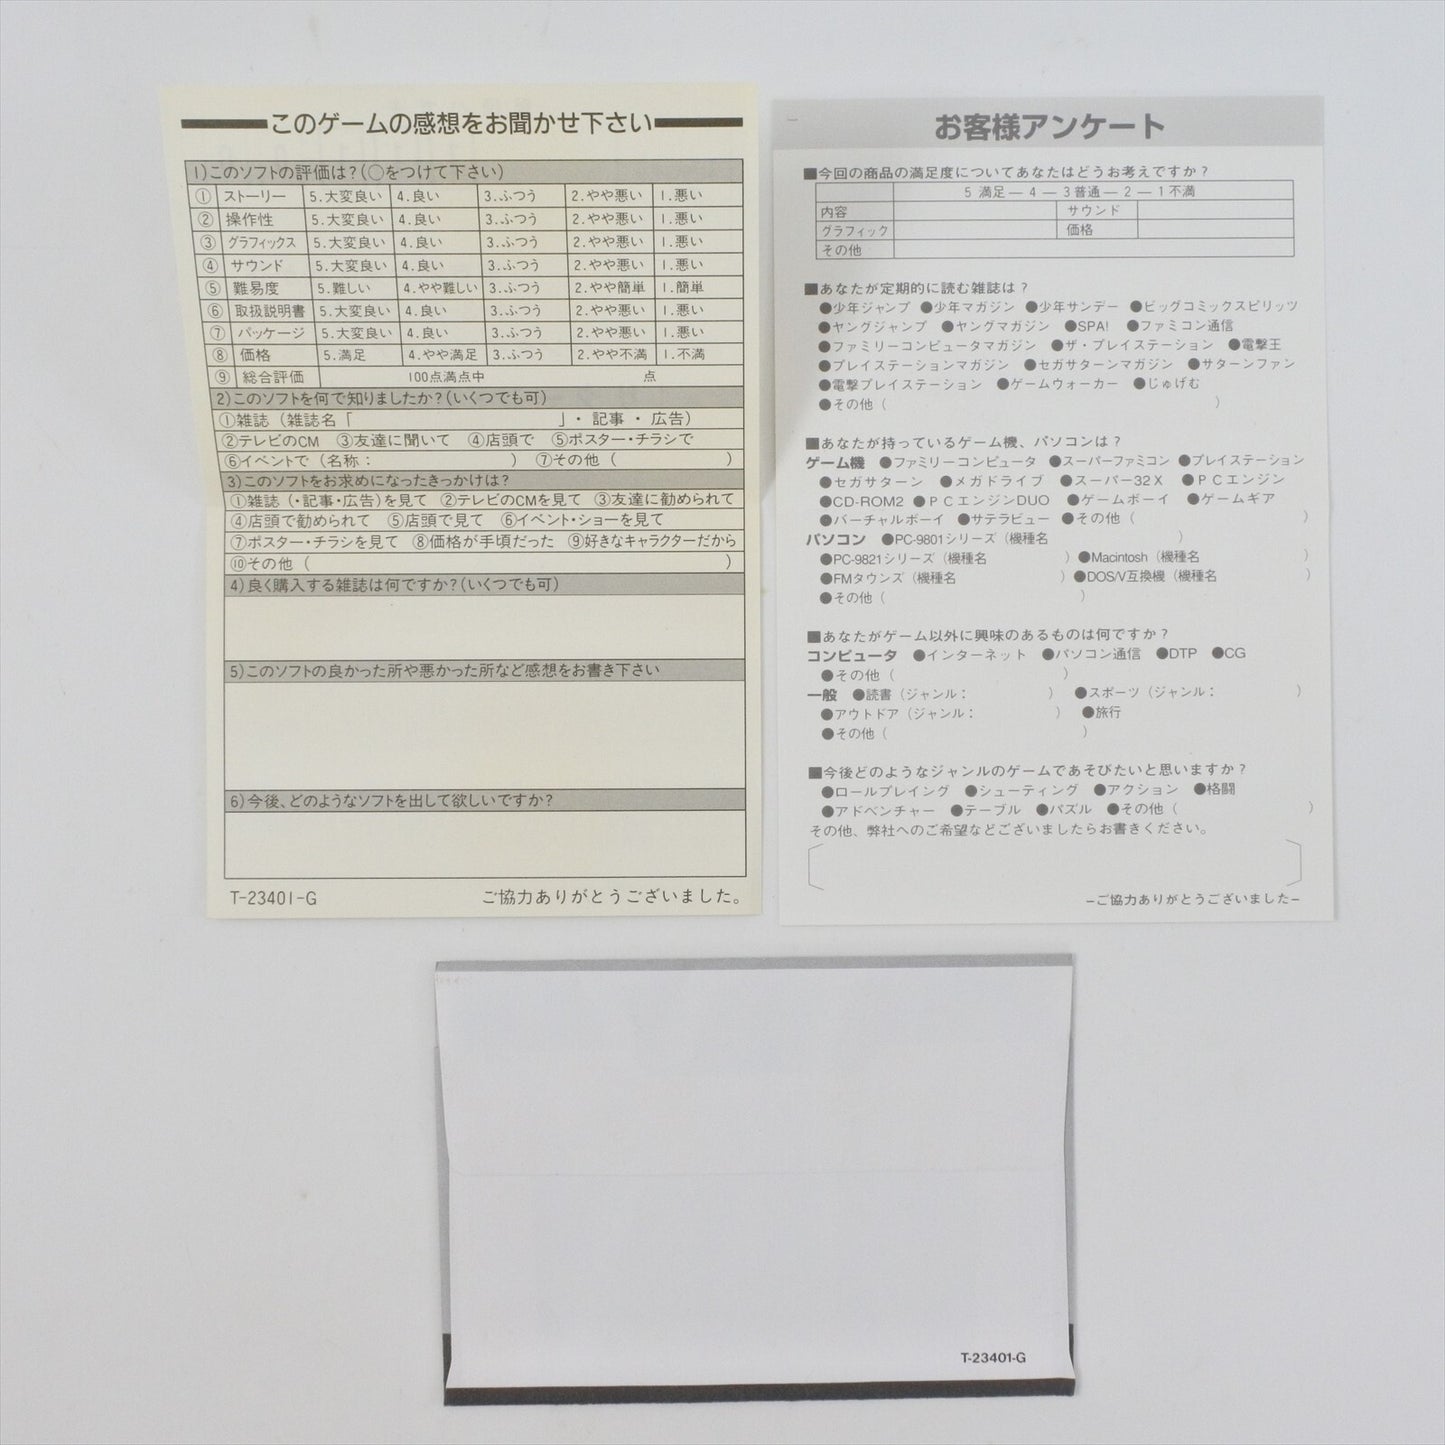 このゲームの感想をお聞かせ下さい
1)このソフトの評価は？(○をつけて下さい)
① ストーリー 5.大変良い 4.良い 3.ふつう 2.やや悪い 1.悪い
② 操作性 5.大変良い 4.良い 3.ふつう 2.やや悪い 1.悪い
③ グラフィックス 5.大変良い 4.良い 3.ふつう 2.やや悪い 1.悪い
④ サウンド 5.大変良い 4.良い 3.ふつう 2.やや悪い 1.悪い
⑤ 難易度 5.難しい 4.やや難しい 3.ふつう 2.やや簡単 1.簡単
⑥ 取扱説明書 5.大変良い 4.良い 3.ふつう 2.やや悪い 1.悪い
⑦ パッケージ 5.大変良い 4.良い 3.ふつう 2.やや悪い 1.悪い
⑧ 価格 5.満足 4.やや満足 3.ふつう 2.やや不満 1.不満
⑨ 総合評価 100点満点中 点
2)このソフトを何で知りましたか？(いくつでも可)
①雑誌（雑誌名「 」・記事・広告）
②テレビのCM ③友達に聞いて ④店頭で ⑤ポスター・チラシで
⑥イベントで（名称： ） ⑦その他（ ）
3)このソフトをお求めになったきっかけは？
①雑誌（・記事・広告）を見て ②テレビのCMを見て ③友達に勧められて
④店頭で勧められて ⑤店頭で見て ⑥イベント・ショーを見て
⑦ポスター・チラシを見て ⑧価格が手頃だった ⑨好きなキャラクターだから
⑩その他（ ）
4)良く購入する雑誌は何ですか？(いくつでも可)
5)このソフトの良かった所や悪かった所など感想をお書き下さい
6)今後、どのようなソフトを出して欲しいですか？
T-23401-G ご協力ありがとうございました。
お客様アンケート
■今回の商品の満足度についてあなたはどうお考えですか？
5 満足 — 4 — 3 普通 — 2 — 1 不満
内容 サウンド
グラフィック 価格
その他
■あなたが定期的に読む雑誌は？
●少年ジャンプ ●少年マガジン ●少年サンデー ●ビッグコミックスピリッツ
●ヤングジャンプ ●ヤングマガジン ●SPA! ●ファミコン通信
●ファミリーコンピュータマガジン ●ザ・プレイステーション ●電撃王
●プレイステーションマガジン ●セガサターンマガジン ●サターンファン
●電撃プレイステーション ●ゲームウォーカー ●じゅげむ
●その他（ ）
■あなたが持っているゲーム機、パソコンは？
ゲーム機 ●ファミリーコンピュータ ●スーパーファミコン ●プレイステーション
●セガサターン ●メガドライブ ●スーパー32X ●PCエンジン
●CD-ROM2 ●PCエンジンDUO ●ゲームボーイ ●ゲームギア
●バーチャルボーイ ●サテラビュー ●その他（ ）
パソコン ●PC-9801シリーズ（機種名 ）
●PC-9821シリーズ（機種名 ） ●Macintosh（機種名 ）
●FMタウンズ（機種名 ） ●DOS/V互換機（機種名 ）
●その他（ ）
■あなたがゲーム以外に興味のあるものは何ですか？
コンピュータ ●インターネット ●パソコン通信 ●DTP ●CG
●その他（ ）
一般 ●読書（ジャンル： ） ●スポーツ（ジャンル： ）
●アウトドア（ジャンル： ） ●旅行
●その他（ ）
■今後どのようなジャンルのゲームであそびたいと思いますか？
●ロールプレイング ●シューティング ●アクション ●格闘
●アドベンチャー ●テーブル ●パズル ●その他（ ）
その他、弊社へのご希望などございましたらお書きください。
−ご協力ありがとうございました−
T-23401-G